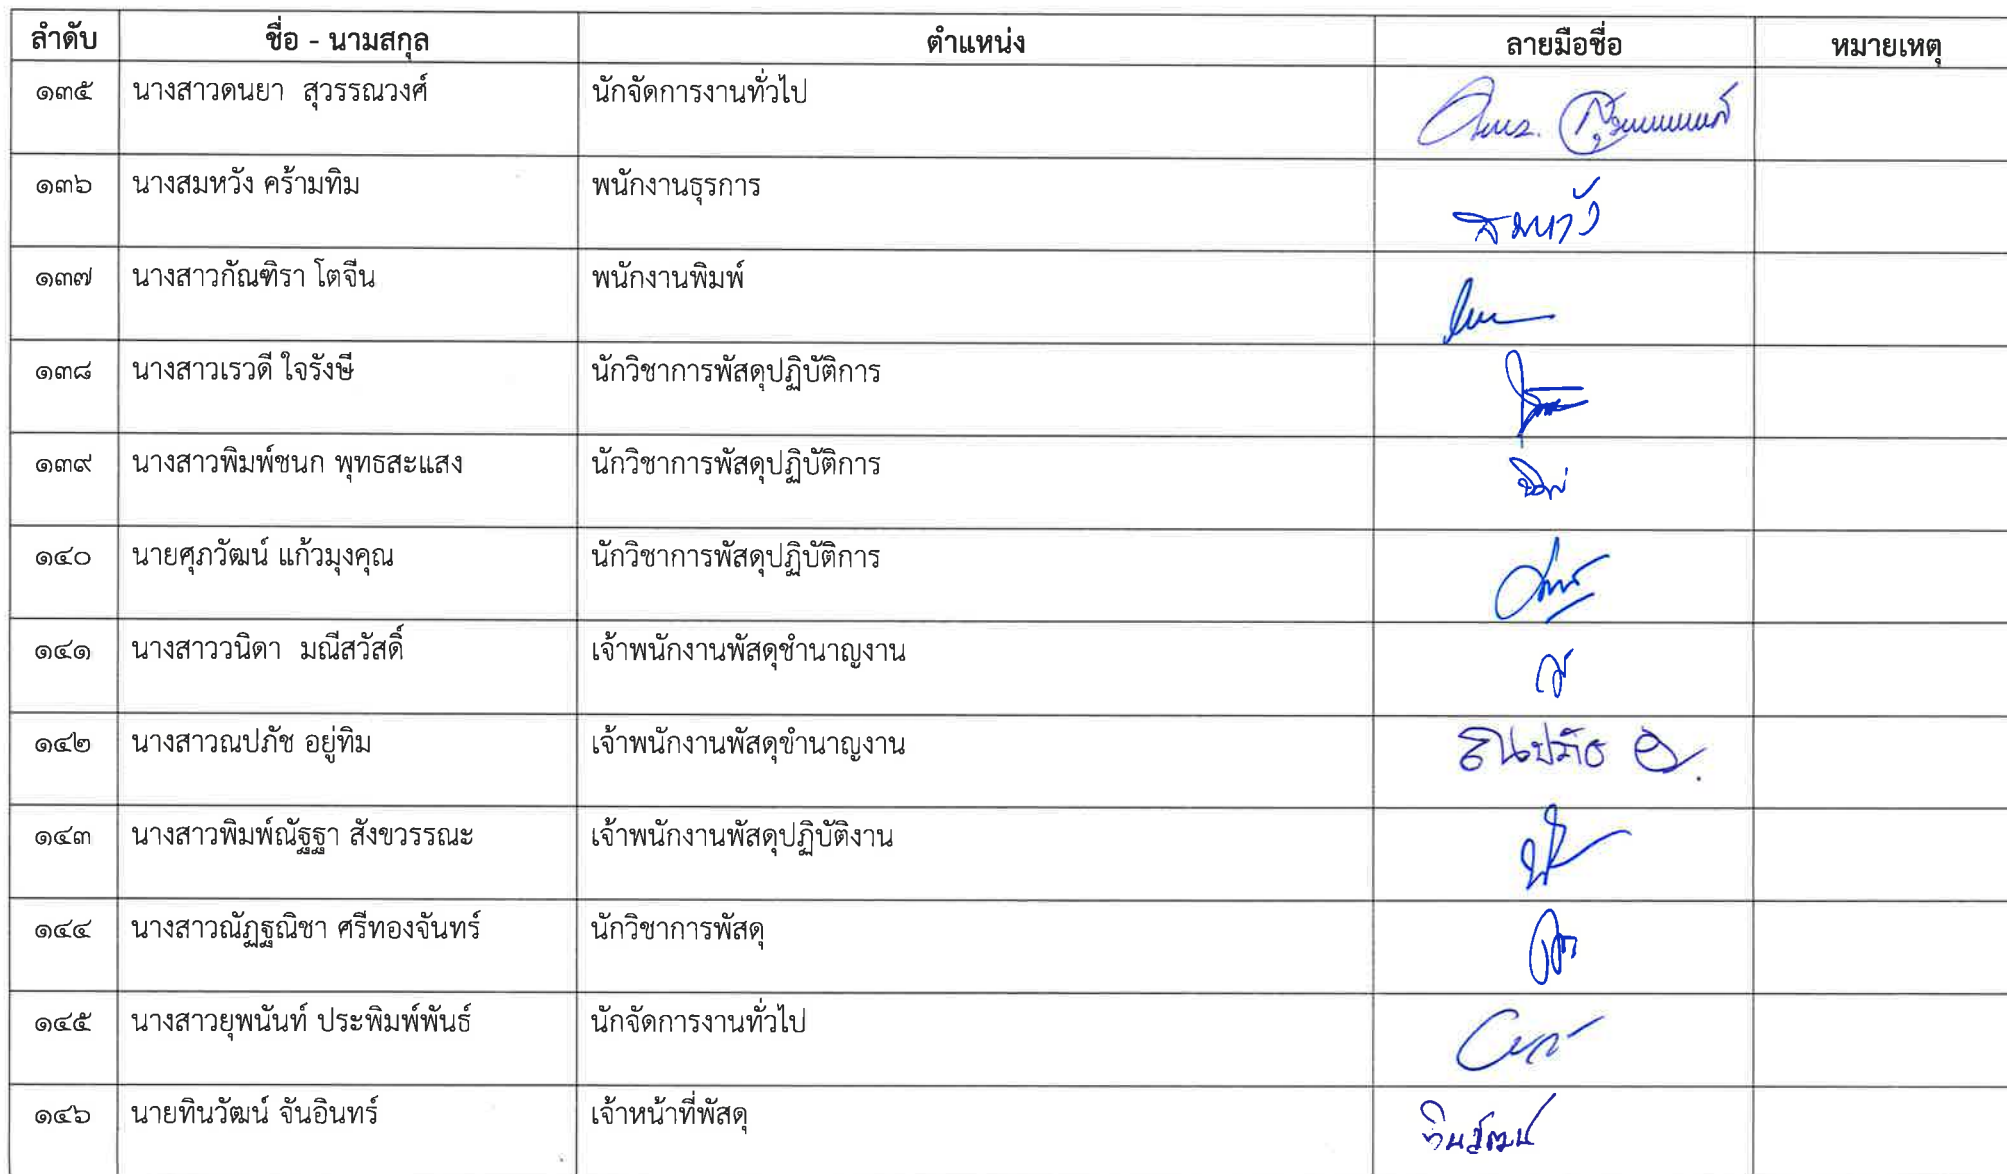 ลำดับ ชื่อ - นามสกุล ตำแหน่ง ลายมือชื่อ หมายเหตุ
๑๓๕ นางสาวดนยา สุวรรณวงศ์ นักจัดการงานทั่วไป
๑๓๖ นางสมหวัง คร้ามทิม พนักงานธุรการ สมหวัง
๑๓๗ นางสาวกัณฑิรา โตจีน พนักงานพิมพ์
๑๓๘ นางสาวเรวดี ใจรังษี นักวิชาการพัสดุปฏิบัติการ
๑๓๙ นางสาวพิมพ์ชนก พุทธสะแสง นักวิชาการพัสดุปฏิบัติการ
๑๔๐ นายศุภวัฒน์ แก้วมุงคุณ นักวิชาการพัสดุปฏิบัติการ
๑๔๑ นางสาววนิดา มณีสวัสดิ์ เจ้าพนักงานพัสดุชำนาญงาน
๑๔๒ นางสาวณปภัช อยู่ทิม เจ้าพนักงานพัสดุขำนาญงาน
๑๔๓ นางสาวพิมพ์ณัฐฐา สังขวรรณะ เจ้าพนักงานพัสดุปฏิบัติงาน
๑๔๔ นางสาวณัฏฐณิชา ศรีทองจันทร์ นักวิชาการพัสดุ
๑๔๕ นางสาวยุพนันท์ ประพิมพ์พันธ์ นักจัดการงานทั่วไป
๑๔๖ นายทินวัฒน์ จันอินทร์ เจ้าหน้าที่พัสดุ ทินวัฒน์